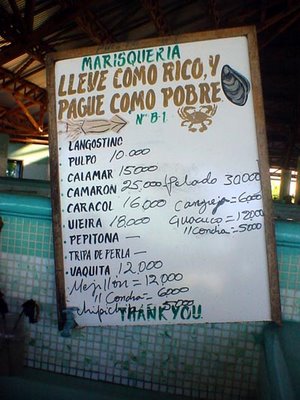 MARISQUERIA
LLEVE COMO RICO, Y
PAGUE COMO POBRE
Nº B-1
• LANGOSTINO
• PULPO 10.000
• CALAMAR 15000
• CAMARON 25.000 (Pelado 30000
• CARACOL 16000 Cangrejo = 6000
• VIEIRA 18.000 Guacuco = 12000
• PEPITONA — 11 Concha = 5000
• TRIPA DE PERLA —
• VAQUITA 12.000
Mejillon = 12,000
11 Concha = 6000
chipichipi = 5000
THANK YOU